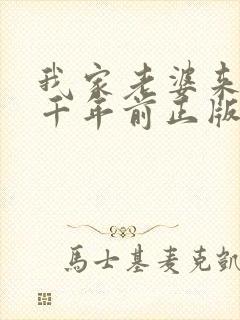 我家老婆来
千年前正版
馬士基麦克凱